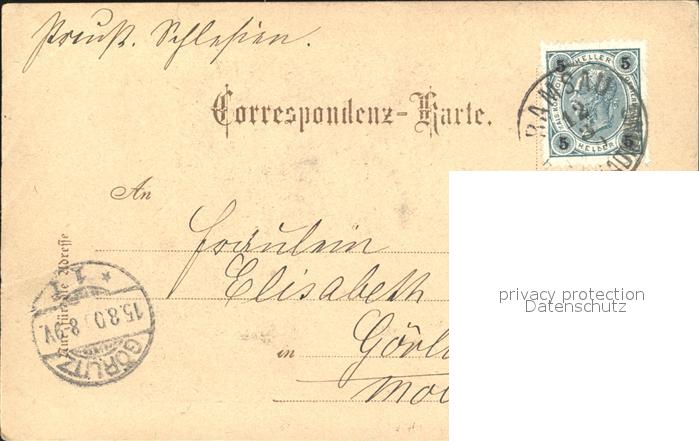 Preuß. Schlesien.
5 HELLER 5
RAMSAU
5 HELLER 5
Correspondenz-Karte.
An
Nur für die Adresse
Fräulein
Elisabeth
privacy protection
Datenschutz
* 1
15.8.0 8-9V.
GÖRLITZ
in Görl